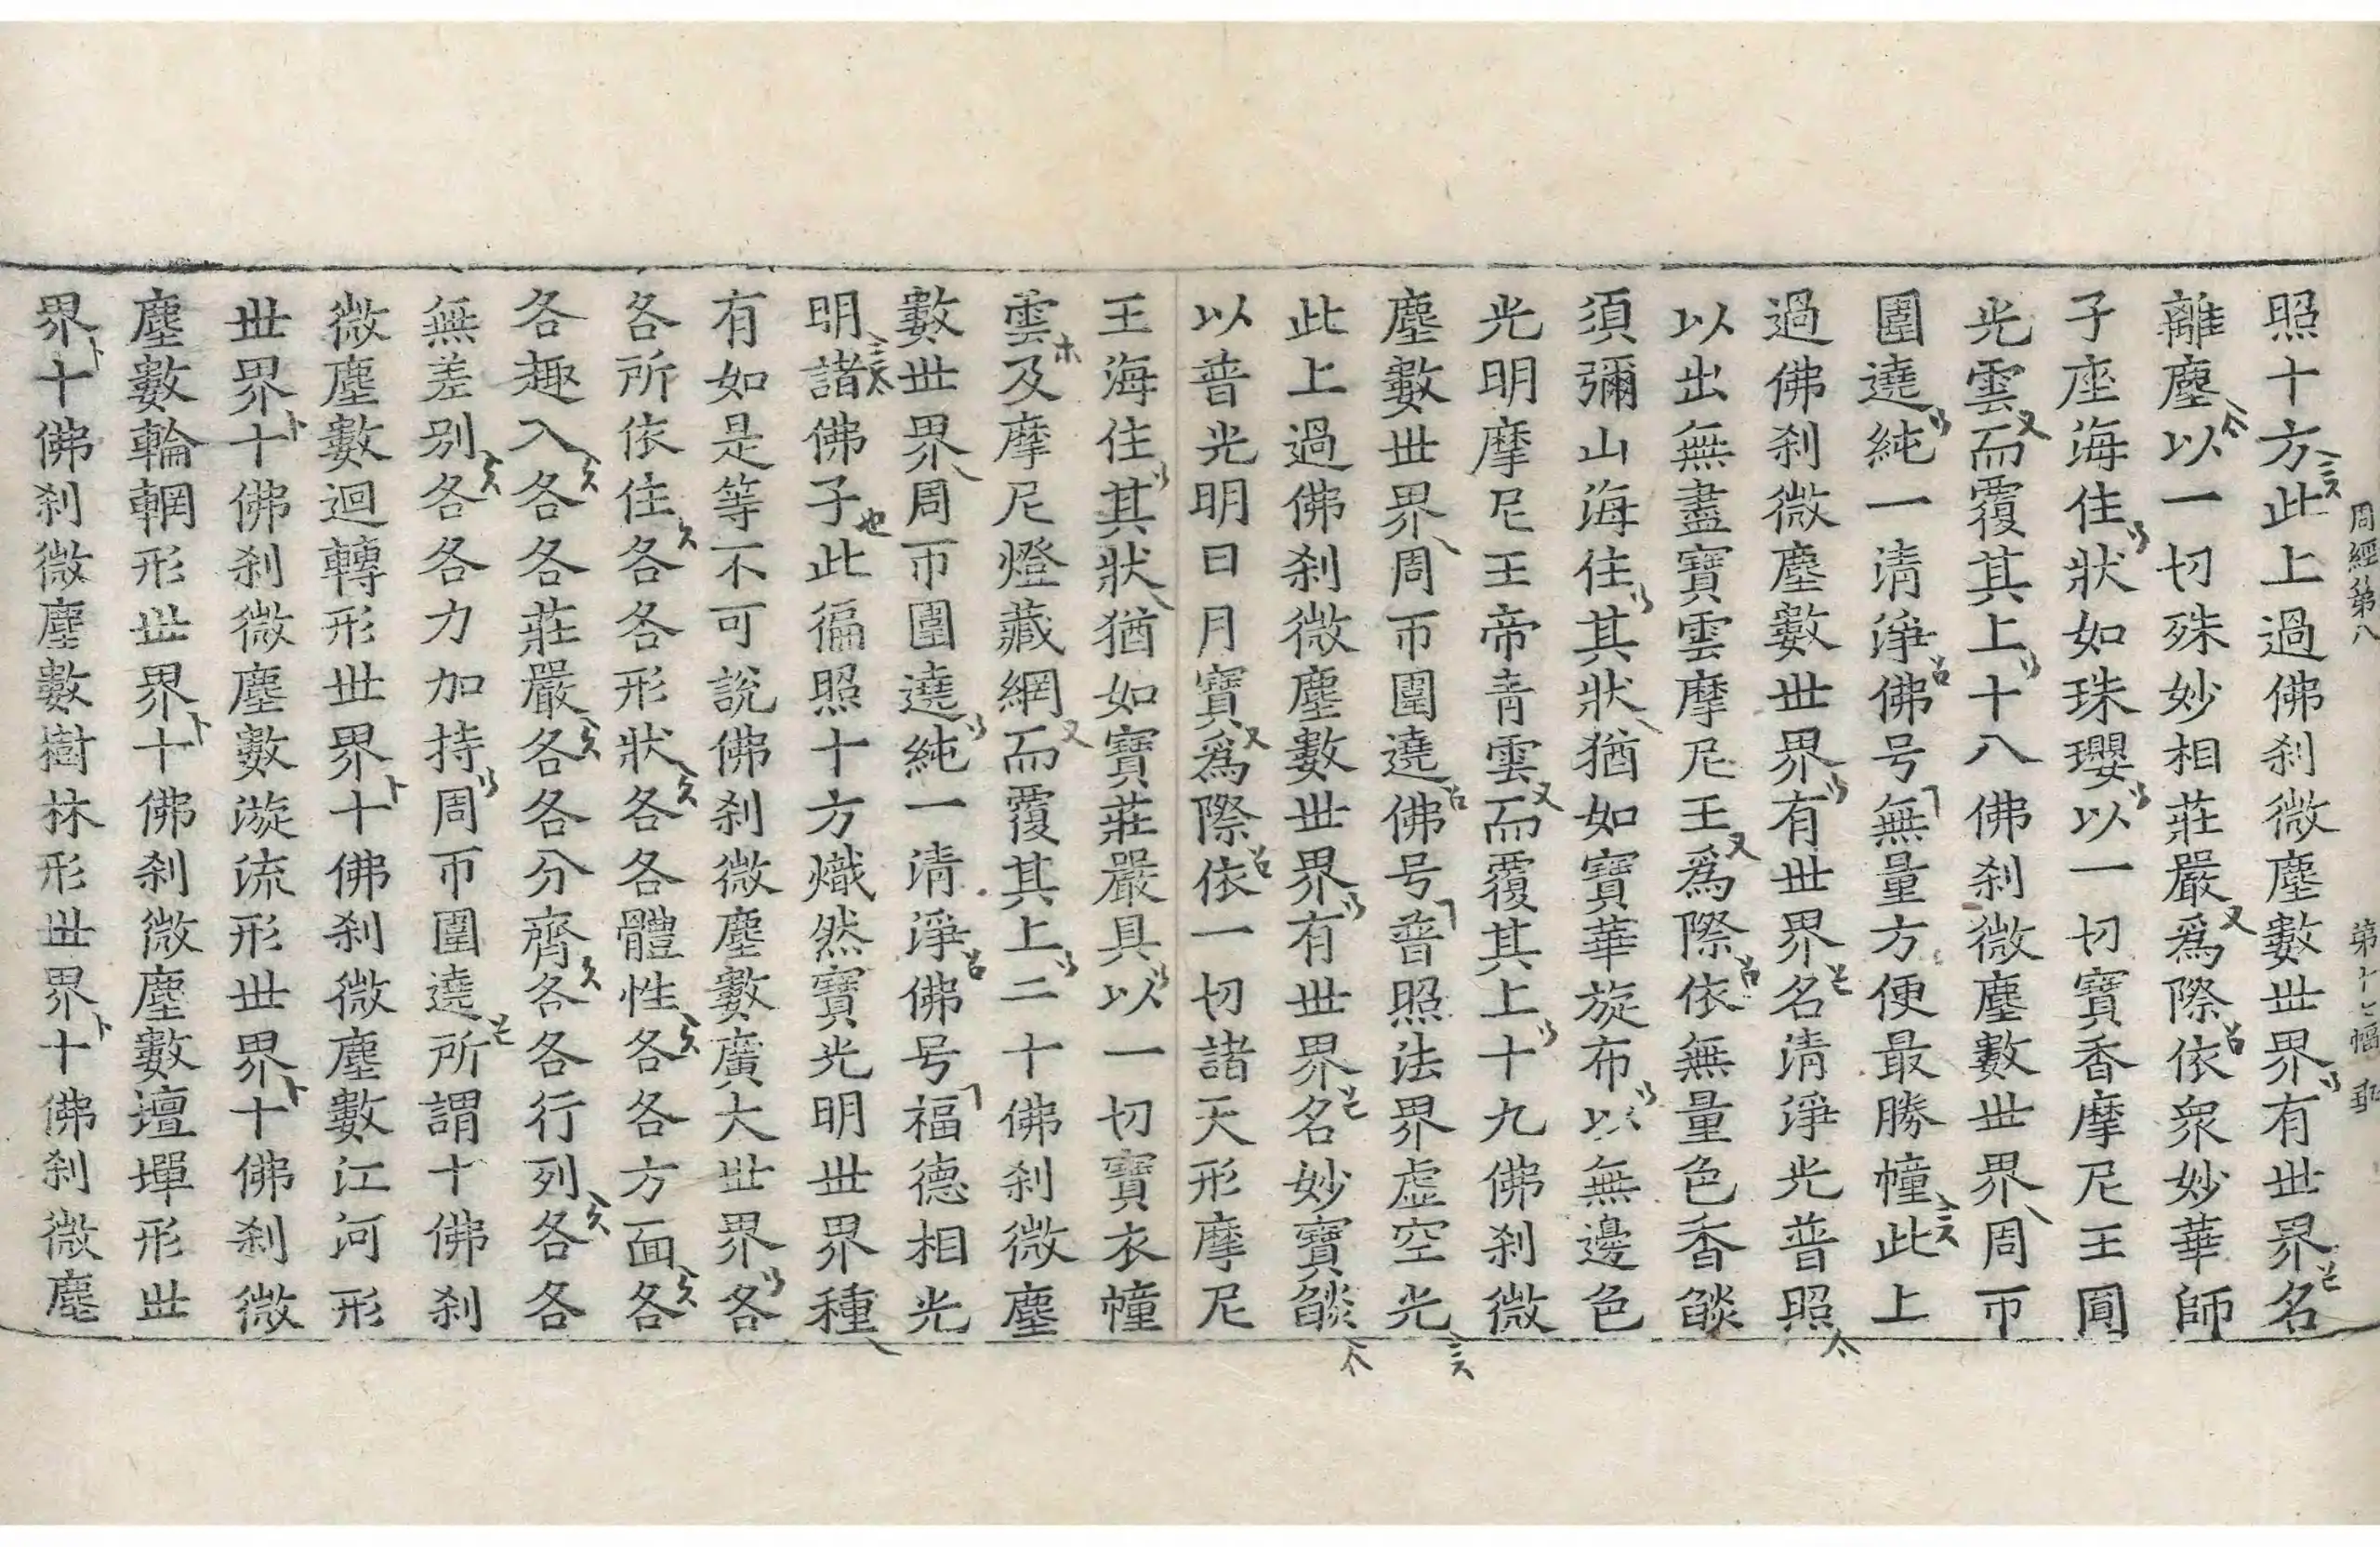 周經第八 第十七幅
照十方此上過佛刹微塵數世界有世界名
離塵以一切殊妙相莊嚴爲際依衆妙華師
子座海住狀如珠瓔以一切寶香摩尼王圓
光雲而覆其上十八佛刹微塵數世界周帀
圍遶純一清淨佛号無量方便最勝幢此上
過佛刹微塵數世界有世界名清淨光普照
以出無盡寶雲摩尼王爲際依無量色香燄
須彌山海住其狀猶如寶華旋布以無邊色
光明摩尼王帝青雲而覆其上十九佛刹微
塵數世界周帀圍遶佛号普照法界虛空光
此上過佛刹微塵數世界有世界名妙寶燄
以普光明日月寶爲際依一切諸天形摩尼
王海住其狀猶如寶莊嚴具以一切寶衣幢
雲及摩尼燈藏網而覆其上二十佛刹微塵
數世界周帀圍遶純一清淨佛号福德相光
明諸佛子此徧照十方熾然寶光明世界種
有如是等不可說佛刹微塵數廣大世界各
各所依住各各形狀各各體性各各方面各
各趣入各各莊嚴各各分齊各各行列各各
無差別各各力加持周帀圍遶所謂十佛刹
微塵數迴轉形世界十佛刹微塵數江河形
世界十佛刹微塵數漩流形世界十佛刹微
塵數輪輞形世界十佛刹微塵數壇墠形世
界十佛刹微塵數樹林形世界十佛刹微塵